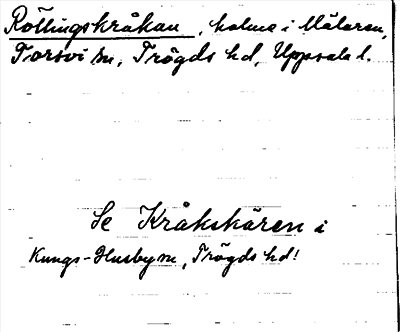 Röllingskråkan, holme i Mälaren,
Torsvi sn, Trögds hd, Uppsala l.
Se Kråkskären i
Kungs-Husby sn, Trögds hd!